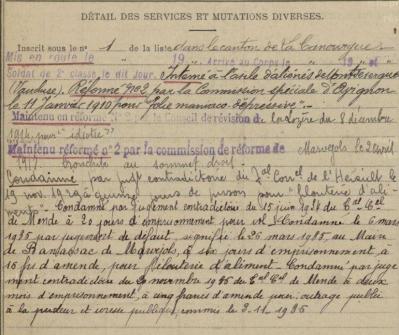 DÉTAIL DES SERVICES ET MUTATIONS DIVERSES.
Inscrit sous le n° 1 de la liste dans le canton de La Canourgue
Mis en route le 19 Arrivé au Corps le 19 et
Soldat de 2e classe le dit jour. Interné à l'asile d'aliénés de Montdevergues
(Vaucluse). Réformé n° 2 par la Commission spéciale d'Avignon
le 11 Janvier 1910 pour "folie maniaco dépressive".
Maintenu en réforme N° 2 par le Conseil de révision de la Lozère du 8 décembre
1914 pour "idiotie"
Maintenu réformé n° 2 par la commission de réforme de Marvejols le 2 avril
1917. bronchite au sommet droit.
Condamné par jugt contradictoire du Tal Correl de l'Hérault le
19 nov. 1929 à quinze jours de prison pour "filouterie d'ali-
ments" - Condamné par jugement contradictoire du 15 juin 1934 du Tal Cel
de Mende à 20 jours d'emprisonnement pour vol - Condamné le 6 mars
1935 par jugement de défaut, signifié le 26 mars 1935, au Maire
de Banassac de Marvejols, à six jours d'emprisonnement à
16 frs d'amende pour filouterie d'aliment - Condamné par juge
ment contradictoire du 20 novembre 1935 du Tal Cel de Mende à deux
mois d'emprisonnement, à cinq francs d'amende pour outrage public
à la pudeur et ivresse publique, commise le 3-11-1935